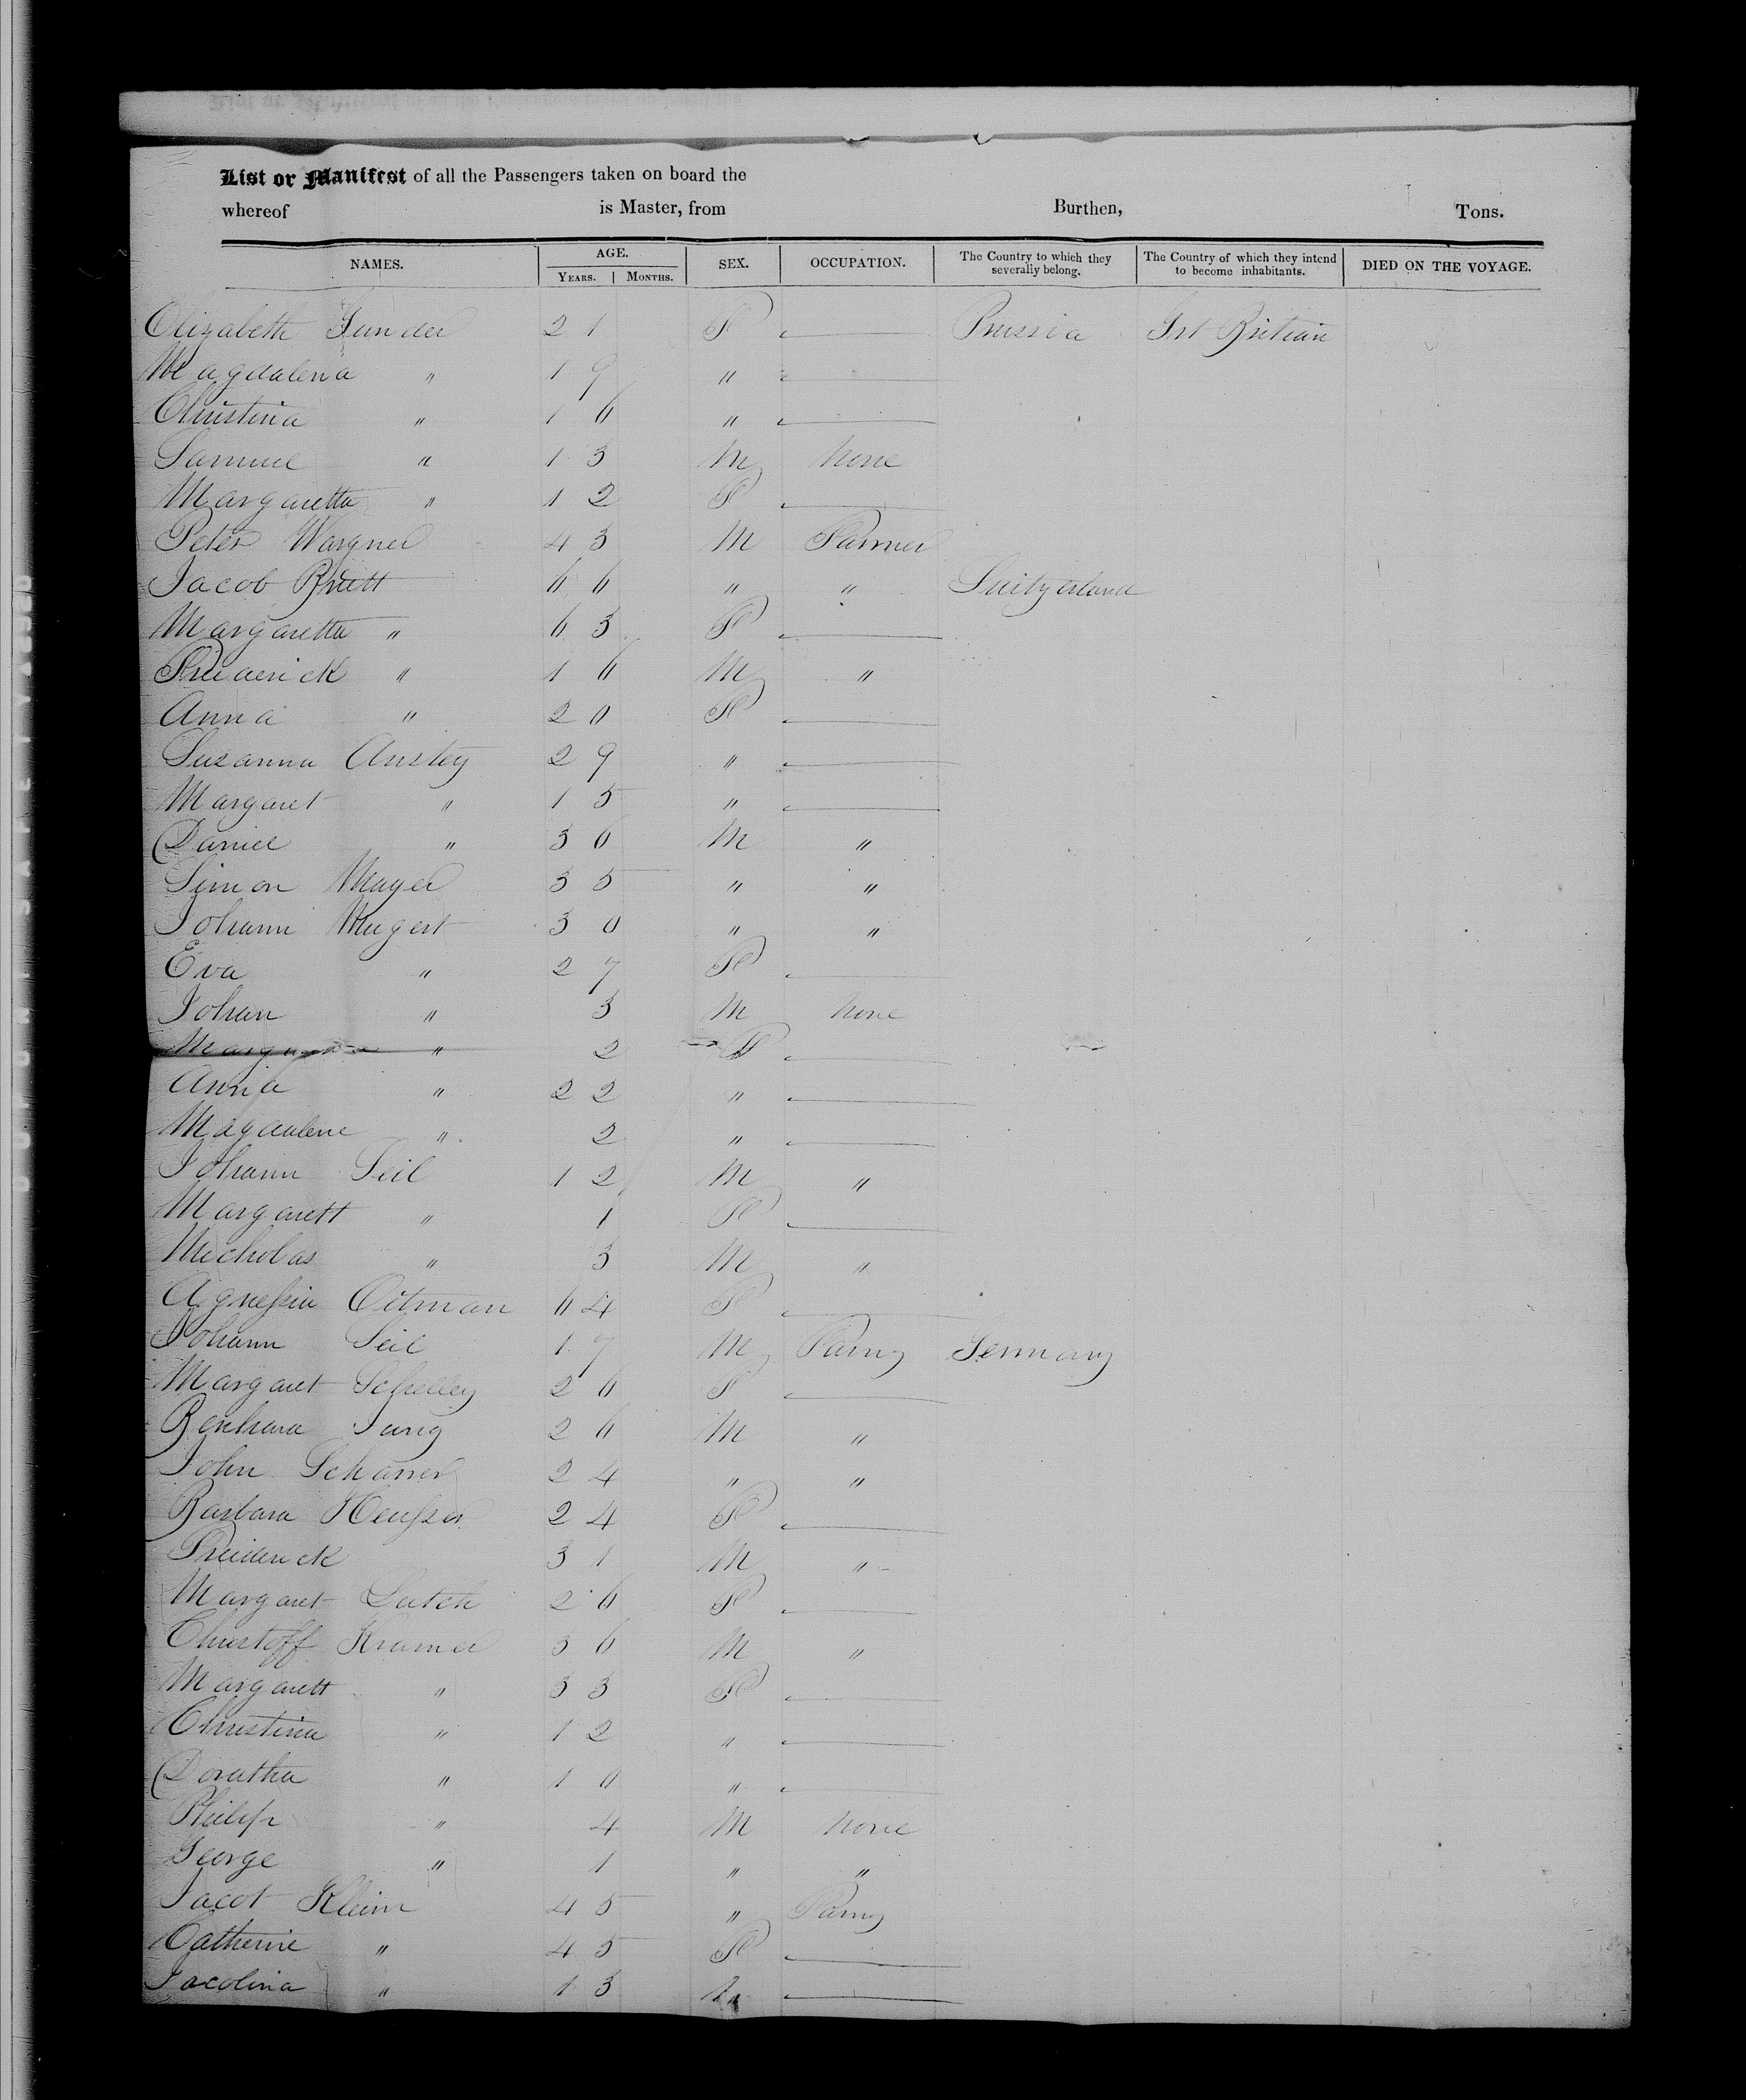 List or Manifest of all the Passengers taken on board the
whereof is Master, from Burthen, Tons.
NAMES. AGE. YEARS. MONTHS. SEX. OCCUPATION. The Country to which they severally belong. The Country of which they intend to become inhabitants. DIED ON THE VOYAGE.
Elizabeth 21 F — Prussia Grt Britian
Magdalena " 19 " —
Christina " 16 " —
Samuel " 13 M None
Margaretta " 12 F —
Peter Wargner 43 M Farmer
Jacob 66 " " Switzerland
Margaretta " 63 F —
Frederick " 16 M "
Anna " 20 F —
Susanna Anstey 29 " —
Margaret " 15 " —
Daniel " 36 M "
Simon Mayer 35 " "
Johann Mugert 30 " "
Eva " 27 F —
Johan " 3 M None
" 2 F —
Anna " 22 " —
Magdalene " 2 " —
Johann Seil 12 M "
Margarett " 1 F —
Nicholas " 3 M "
Oitman 64 F —
Johann Seil 17 M Farmg Germany
Margaret Schelley 26 F —
Jung 26 M "
John Scharrer 24 " "
Barbara Heusser 24 F —
Freiderick 31 M "
Margaret 26 F —
Christoff Kramer 36 M "
Margarett " 33 F —
Christina " 12 " —
Doratha " 10 " —
Philip " 4 M None
George " 1 " "
Jacob Kleim 45 " Farmg
Catherine " 45 F —
Jacolina " 13 —